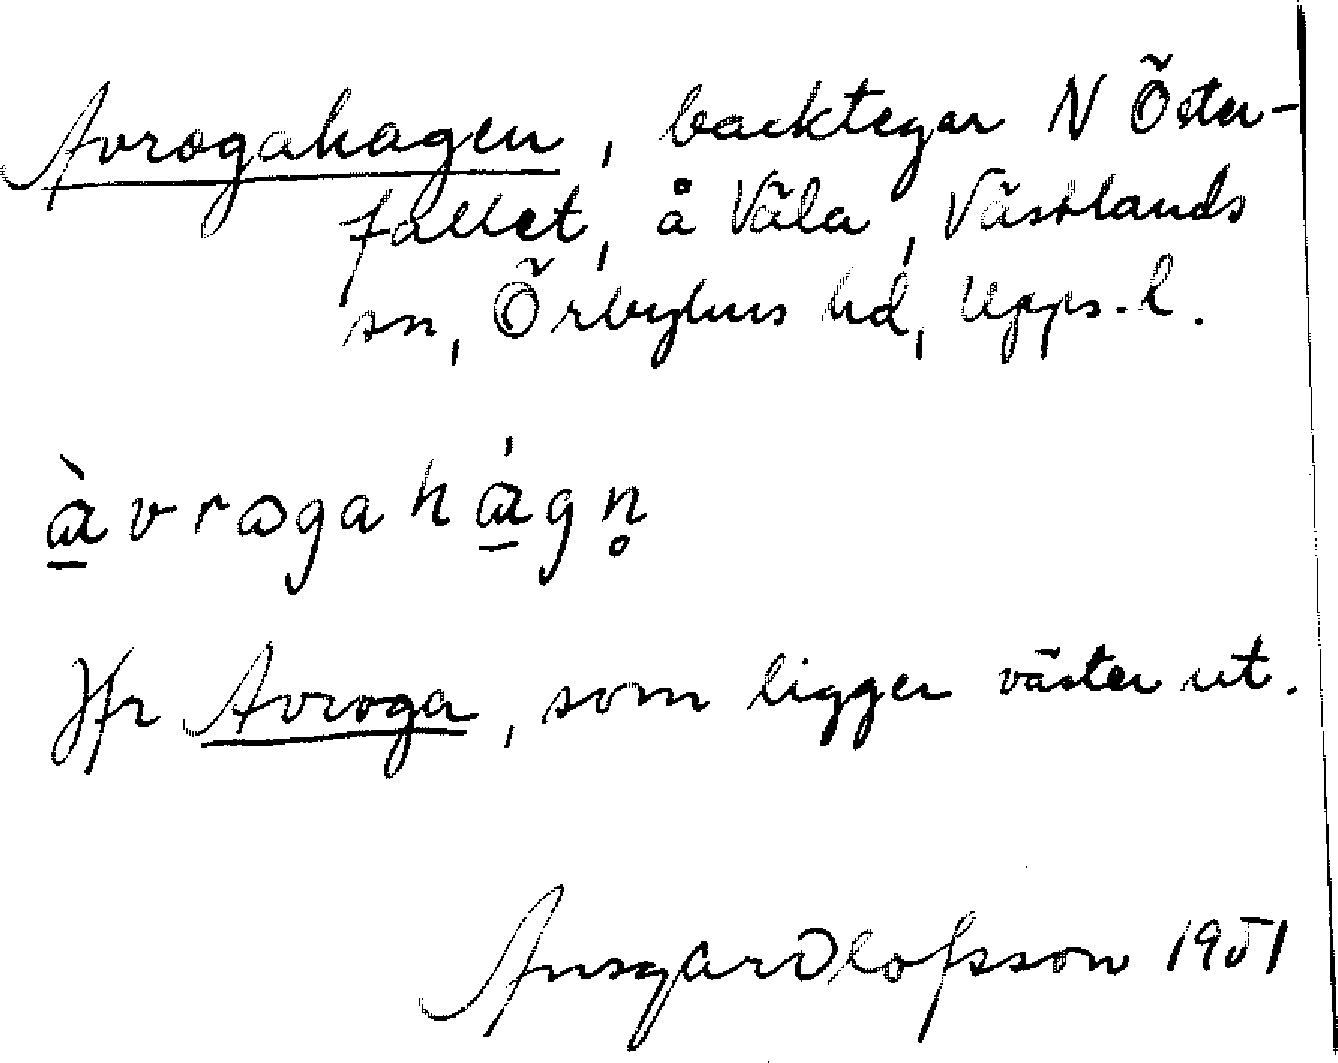 Avrogahagen, backtegar N Öster-
fallet, å Väla, Västlands
sn, Örbyhus hd, Upps. l.
àvrogahágn̥
Jfr Avroga, som ligger väster ut.
Ansgar Olofsson 1951